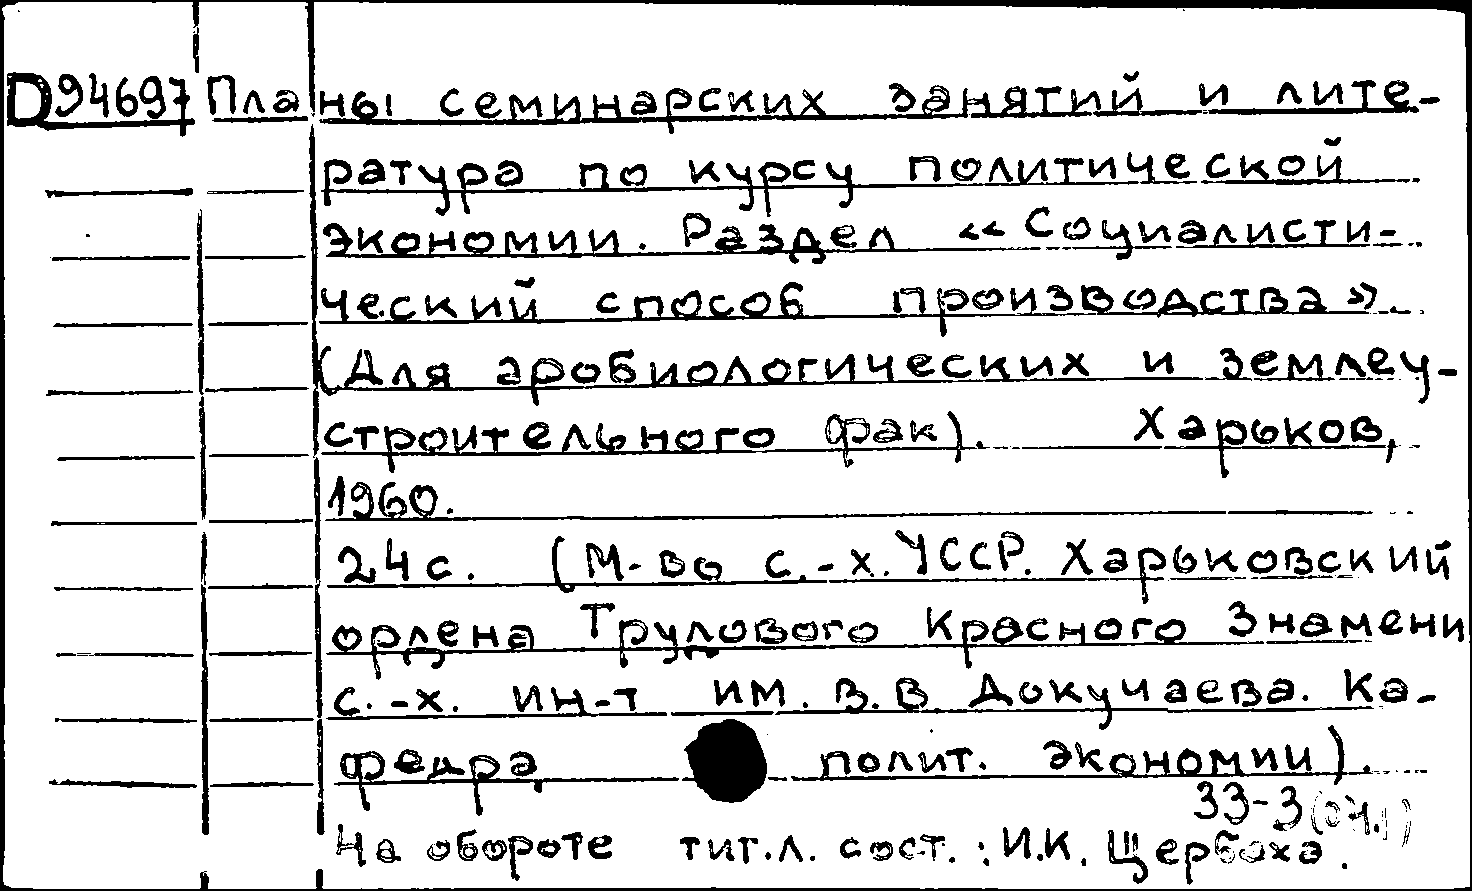 D94697 Планы семинарских занятий и лите-
ратура по курсу политической
экономии. Раздел «Социалисти-
ческий способ производства».
(Для аробиологических и землеу-
строительного фак). Харьков,
1960.
24 с. (М-во с.-х. УССР. Харьковский
ордена Трудового Красного Знамени
с.-х. ин-т им. В.В. Докучаева. Ка-
федра полит. экономии).
33-3
На обороте тит.л. сост.: И.К. Щербоха.